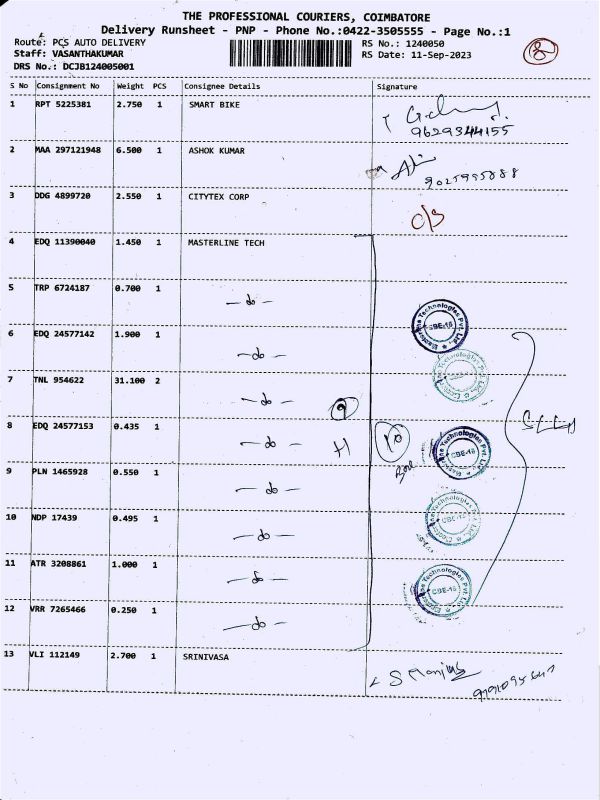 THE PROFESSIONAL COURIERS, COIMBATORE
Delivery Runsheet - PNP - Phone No.:0422-3505555 - Page No.:1
Route: PCS AUTO DELIVERY RS No.: 1240050
Staff: VASANTHAKUMAR RS Date: 11-Sep-2023
DRS No.: DCJB124005001
8
S No Consignment No Weight PCS Consignee Details Signature
1 RPT 5225381 2.750 1 SMART BIKE
9629344155
2 MAA 297121948 6.500 1 ASHOK KUMAR
3 DDG 4899720 2.550 1 CITYTEX CORP
O/S
4 EDQ 11390040 1.450 1 MASTERLINE TECH
5 TRP 6724187 0.700 1
- do -
6 EDQ 24577142 1.900 1
- do -
7 TNL 954622 31.100 2
- do - 9
8 EDQ 24577153 0.435 1
- do - H 10
Box
9 PLN 1465928 0.550 1
- do -
10 NDP 17439 0.495 1
- do -
11 ATR 3208861 1.000 1
- do -
12 VRR 7265466 0.250 1
- do -
13 VLI 112149 2.700 1 SRINIVASA
Technologies Pvt. Ltd.
CBE-18